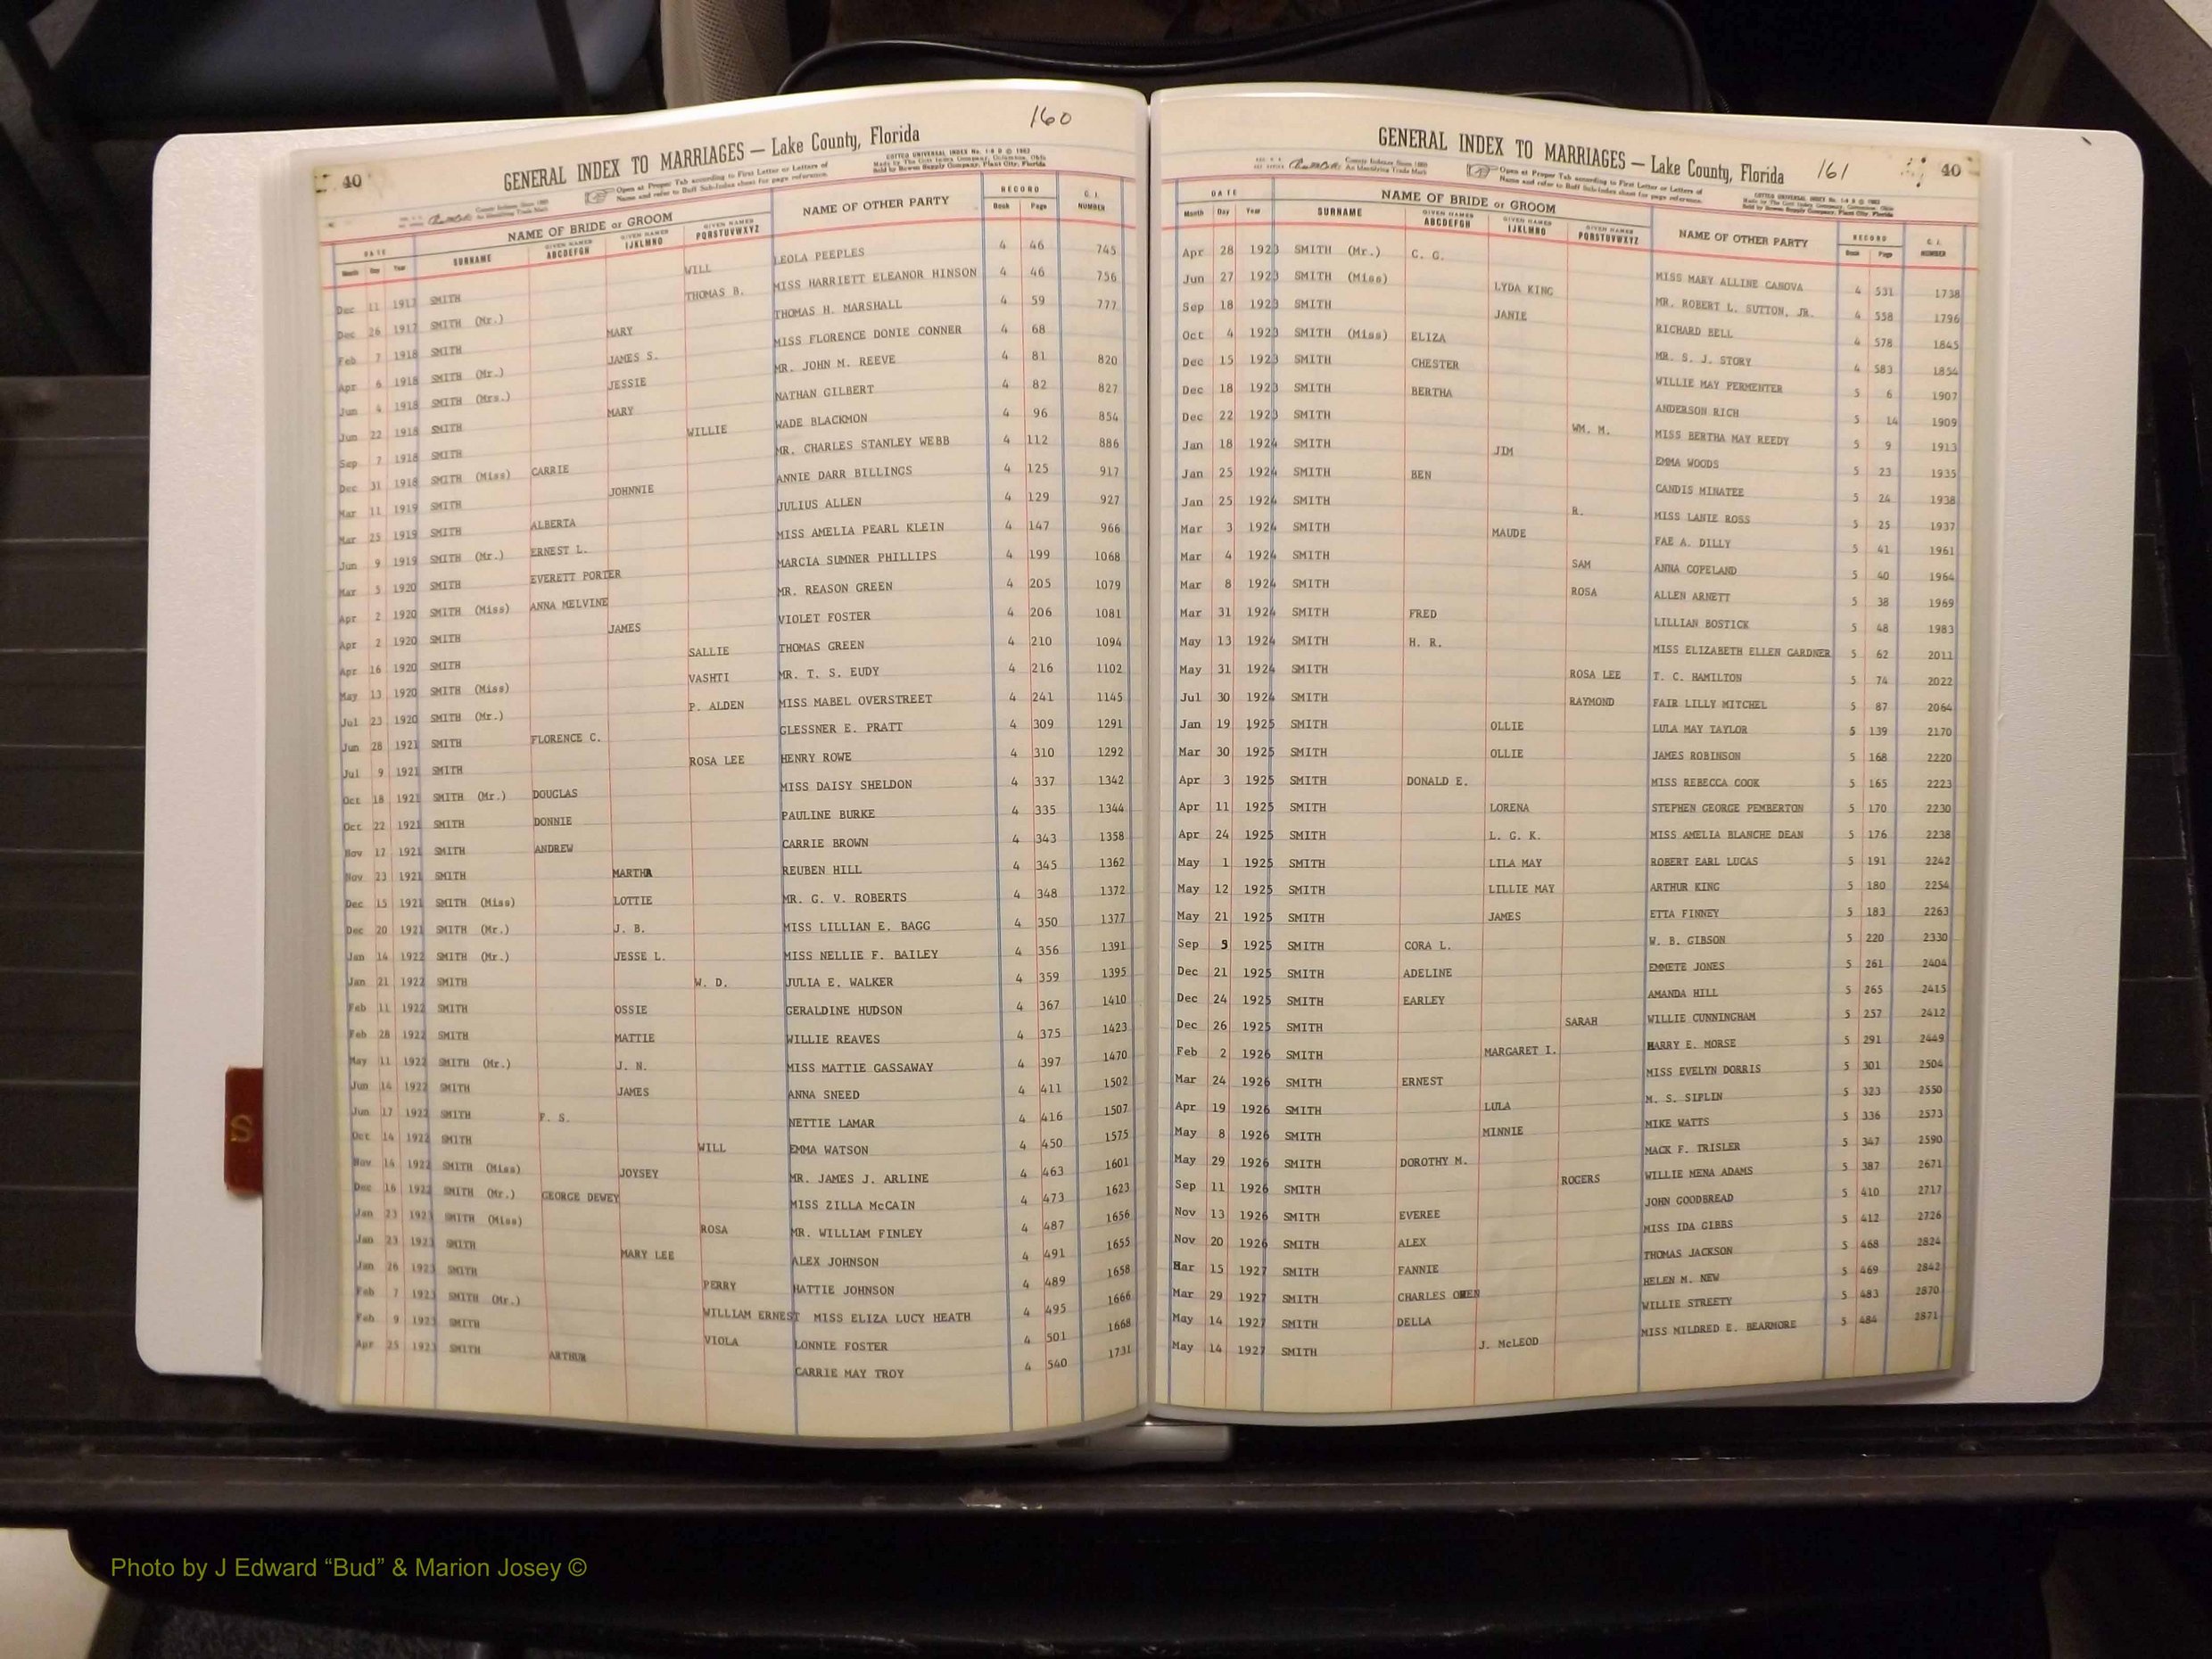 160
40
GENERAL INDEX TO MARRIAGES — Lake County, Florida
Open at Proper Tab according to First Letter or Letters of
Name and refer to Buff Sub-Index sheet for page reference.
COTTCO UNIVERSAL INDEX No. 1-S B © 1962
Made by The Cott Index Company, Columbus, Ohio
Sold by Bowen Supply Company, Plant City, Florida
County Indexes Since 1889
An Identifying Trade Mark
DATE NAME OF BRIDE or GROOM NAME OF OTHER PARTY RECORD C. I. NUMBER
Month Day Year SURNAME GIVEN NAMES ABCDEFGH GIVEN NAMES IJKLMNO GIVEN NAMES PQRSTUVWXYZ Book Page
Dec 11 1917 SMITH WILL LEOLA PEEPLES 4 46 745
Dec 26 1917 SMITH (Mr.) THOMAS B. MISS HARRIETT ELEANOR HINSON 4 46 756
Feb 7 1918 SMITH MARY THOMAS H. MARSHALL 4 59 777
Apr 6 1918 SMITH (Mr.) JAMES S. MISS FLORENCE DONIE CONNER 4 68
Jun 4 1918 SMITH (Mrs.) JESSIE MR. JOHN M. REEVE 4 81 820
Jun 22 1918 SMITH MARY NATHAN GILBERT 4 82 827
Sep 7 1918 SMITH WILLIE WADE BLACKMON 4 96 854
Dec 31 1918 SMITH (Miss) CARRIE MR. CHARLES STANLEY WEBB 4 112 886
Mar 11 1919 SMITH JOHNNIE ANNIE DARR BILLINGS 4 125 917
Mar 25 1919 SMITH ALBERTA JULIUS ALLEN 4 129 927
Jun 9 1919 SMITH (Mr.) ERNEST L. MISS AMELIA PEARL KLEIN 4 147 966
Mar 5 1920 SMITH EVERETT PORTER MARCIA SUMNER PHILLIPS 4 199 1068
Apr 2 1920 SMITH (Miss) ANNA MELVINE MR. REASON GREEN 4 205 1079
Apr 2 1920 SMITH JAMES VIOLET FOSTER 4 206 1081
Apr 16 1920 SMITH SALLIE THOMAS GREEN 4 210 1094
May 13 1920 SMITH (Miss) VASHTI MR. T. S. EUDY 4 216 1102
Jul 23 1920 SMITH (Mr.) P. ALDEN MISS MABEL OVERSTREET 4 241 1145
Jun 28 1921 SMITH FLORENCE C. GLESSNER E. PRATT 4 309 1291
Jul 9 1921 SMITH ROSA LEE HENRY ROWE 4 310 1292
Oct 18 1921 SMITH (Mr.) DOUGLAS MISS DAISY SHELDON 4 337 1342
Oct 22 1921 SMITH DONNIE PAULINE BURKE 4 335 1344
Nov 17 1921 SMITH ANDREW CARRIE BROWN 4 343 1358
Nov 23 1921 SMITH MARTHA REUBEN HILL 4 345 1362
Dec 15 1921 SMITH (Miss) LOTTIE MR. G. V. ROBERTS 4 348 1372
Dec 20 1921 SMITH (Mr.) J. B. MISS LILLIAN E. BAGG 4 350 1377
Jan 14 1922 SMITH (Mr.) JESSE L. MISS NELLIE F. BAILEY 4 356 1391
Jan 21 1922 SMITH W. D. JULIA E. WALKER 4 359 1395
Feb 11 1922 SMITH OSSIE GERALDINE HUDSON 4 367 1410
Feb 28 1922 SMITH MATTIE WILLIE REAVES 4 375 1423
May 11 1922 SMITH (Mr.) J. N. MISS MATTIE GASSAWAY 4 397 1470
Jun 14 1922 SMITH JAMES ANNA SNEED 4 411 1502
Jun 17 1922 SMITH F. S. NETTIE LAMAR 4 416 1507
Oct 14 1922 SMITH WILL EMMA WATSON 4 450 1575
Nov 14 1922 SMITH (Miss) JOYSEY MR. JAMES J. ARLINE 4 463 1601
Dec 16 1922 SMITH (Mr.) GEORGE DEWEY MISS ZILLA McCAIN 4 473 1623
Jan 23 1923 SMITH (Miss) ROSA MR. WILLIAM FINLEY 4 487 1656
Jan 23 1923 SMITH MARY LEE ALEX JOHNSON 4 491 1655
Jan 26 1923 SMITH PERRY HATTIE JOHNSON 4 489 1658
Feb 7 1923 SMITH (Mr.) WILLIAM ERNEST MISS ELIZA LUCY HEATH 4 495 1666
Feb 9 1923 SMITH VIOLA LONNIE FOSTER 4 501 1668
Apr 25 1923 SMITH ARTHUR CARRIE MAY TROY 4 540 1731
S
GENERAL INDEX TO MARRIAGES — Lake County, Florida
161
40
County Indexes Since 1889
An Identifying Trade Mark
Open at Proper Tab according to First Letter or Letters of
Name and refer to Buff Sub-Index sheet for page reference.
COTTCO UNIVERSAL INDEX No. 1-S B © 1962
Made by The Cott Index Company, Columbus, Ohio
Sold by Bowen Supply Company, Plant City, Florida
DATE NAME OF BRIDE or GROOM NAME OF OTHER PARTY RECORD C. I. NUMBER
Month Day Year SURNAME GIVEN NAMES ABCDEFGH GIVEN NAMES IJKLMNO GIVEN NAMES PQRSTUVWXYZ Book Page
Apr 28 1923 SMITH (Mr.) C. G. MISS MARY ALLINE CANOVA 4 531 1738
Jun 27 1923 SMITH (Miss) LYDA KING MR. ROBERT L. SUTTON, JR. 4 558 1796
Sep 18 1923 SMITH JANIE RICHARD BELL 4 578 1845
Oct 4 1923 SMITH (Miss) ELIZA MR. S. J. STORY 4 583 1854
Dec 15 1923 SMITH CHESTER WILLIE MAY PERMENTER 5 6 1907
Dec 18 1923 SMITH BERTHA ANDERSON RICH 5 14 1909
Dec 22 1923 SMITH WM. M. MISS BERTHA MAY REEDY 5 9 1913
Jan 18 1924 SMITH JIM EMMA WOODS 5 23 1935
Jan 25 1924 SMITH BEN CANDIS MINATEE 5 24 1938
Jan 25 1924 SMITH R. MISS LANIE ROSS 5 25 1937
Mar 3 1924 SMITH MAUDE FAE A. DILLY 5 41 1961
Mar 4 1924 SMITH SAM ANNA COPELAND 5 40 1964
Mar 8 1924 SMITH ROSA ALLEN ARNETT 5 38 1969
Mar 31 1924 SMITH FRED LILLIAN BOSTICK 5 48 1983
May 13 1924 SMITH H. R. MISS ELIZABETH ELLEN GARDNER 5 62 2011
May 31 1924 SMITH ROSA LEE T. C. HAMILTON 5 74 2022
Jul 30 1924 SMITH RAYMOND FAIR LILLY MITCHEL 5 87 2064
Jan 19 1925 SMITH OLLIE LULA MAY TAYLOR 5 139 2170
Mar 30 1925 SMITH OLLIE JAMES ROBINSON 5 168 2220
Apr 3 1925 SMITH DONALD E. MISS REBECCA COOK 5 165 2223
Apr 11 1925 SMITH LORENA STEPHEN GEORGE PEMBERTON 5 170 2230
Apr 24 1925 SMITH L. G. K. MISS AMELIA BLANCHE DEAN 5 176 2238
May 1 1925 SMITH LILA MAY ROBERT EARL LUCAS 5 191 2242
May 12 1925 SMITH LILLIE MAY ARTHUR KING 5 180 2254
May 21 1925 SMITH JAMES ETTA FINNEY 5 183 2263
Sep 5 1925 SMITH CORA L. W. B. GIBSON 5 220 2330
Dec 21 1925 SMITH ADELINE EMMETE JONES 5 261 2404
Dec 24 1925 SMITH EARLEY AMANDA HILL 5 265 2415
Dec 26 1925 SMITH SARAH WILLIE CUNNINGHAM 5 257 2412
Feb 2 1926 SMITH MARGARET I. HARRY E. MORSE 5 291 2449
Mar 24 1926 SMITH ERNEST MISS EVELYN DORRIS 5 301 2504
Apr 19 1926 SMITH LULA M. S. SIPLIN 5 323 2550
May 8 1926 SMITH MINNIE MIKE WATTS 5 336 2573
May 29 1926 SMITH DOROTHY M. MACK F. TRISLER 5 347 2590
Sep 11 1926 SMITH ROGERS WILLIE MENA ADAMS 5 387 2671
Nov 13 1926 SMITH EVEREE JOHN GOODBREAD 5 410 2717
Nov 20 1926 SMITH ALEX MISS IDA GIBBS 5 412 2726
Mar 15 1927 SMITH FANNIE THOMAS JACKSON 5 468 2824
Mar 29 1927 SMITH CHARLES OWEN HELEN M. NEW 5 469 2842
May 14 1927 SMITH DELLA WILLIE STREETY 5 483 2870
May 14 1927 SMITH J. McLEOD MISS MILDRED E. BEARMORE 5 484 2871
Photo by J Edward “Bud” & Marion Josey ©